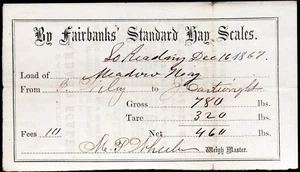 By Fairbanks' Standard Hay Scales.
So Reading Dec 16 1867.
Load of Meadow Hay
From to J Cartwright
Gross 780 lbs.
Tare 320 lbs.
Fees 10 Net 460 lbs.
M. P. Wheeler Weigh Master.